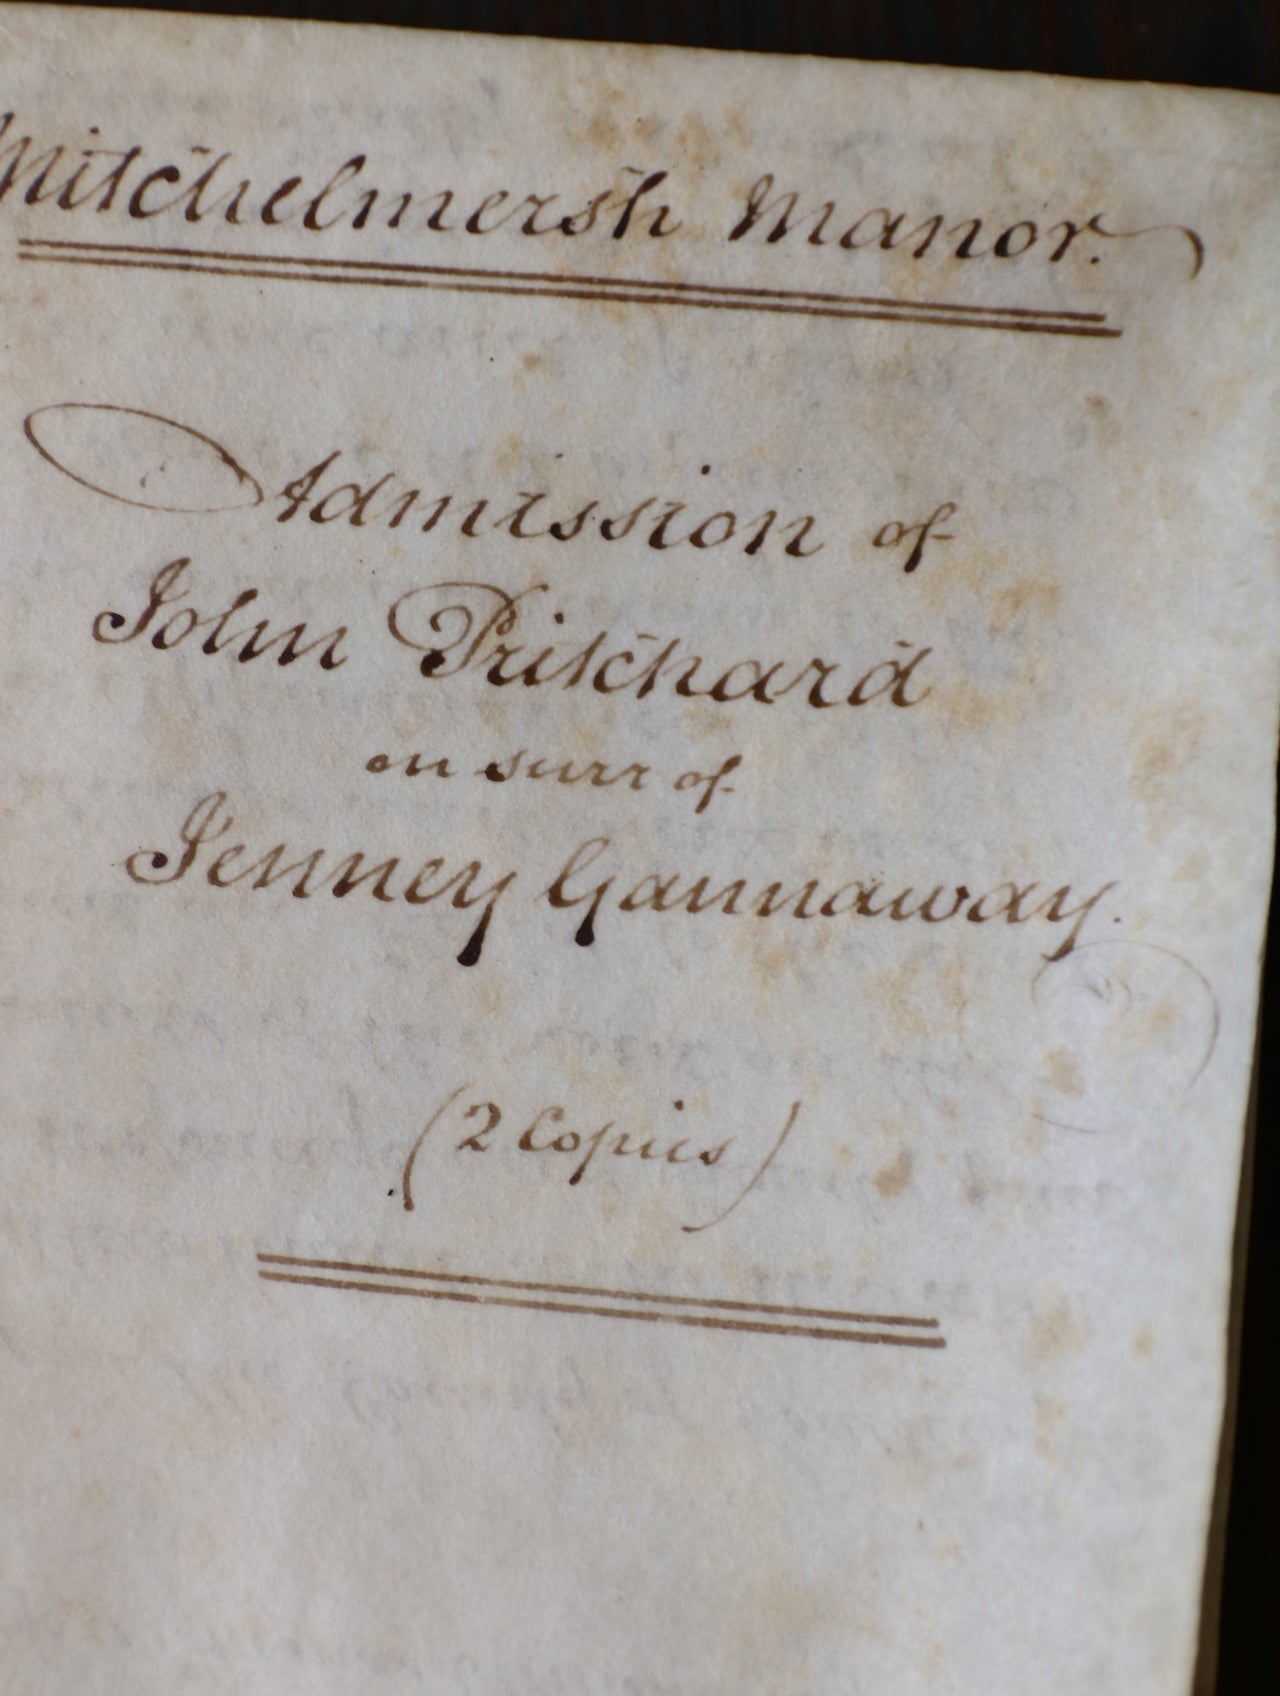 Mitchelmersh Manor.
Admission of
John Pritchard
on surr of
Jenney Gannaway.
(2 Copies)